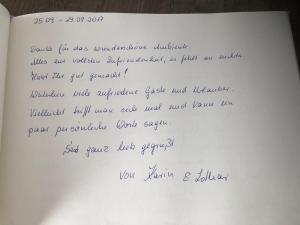 25.09 - 29.09.2017
Danke für das wunderschöne Ambiente
Alles zur vollsten Zufriedenheit, es fehlt an nichts.
Habt Ihr gut gemacht!
Weiterhin viele zufriedene Gäste und Urlauber.
Vielleicht trifft man sich mal und kann ein
paar persönliche Worte sagen.
Seid ganz lieb gegrüßt
von Karin & Lothar